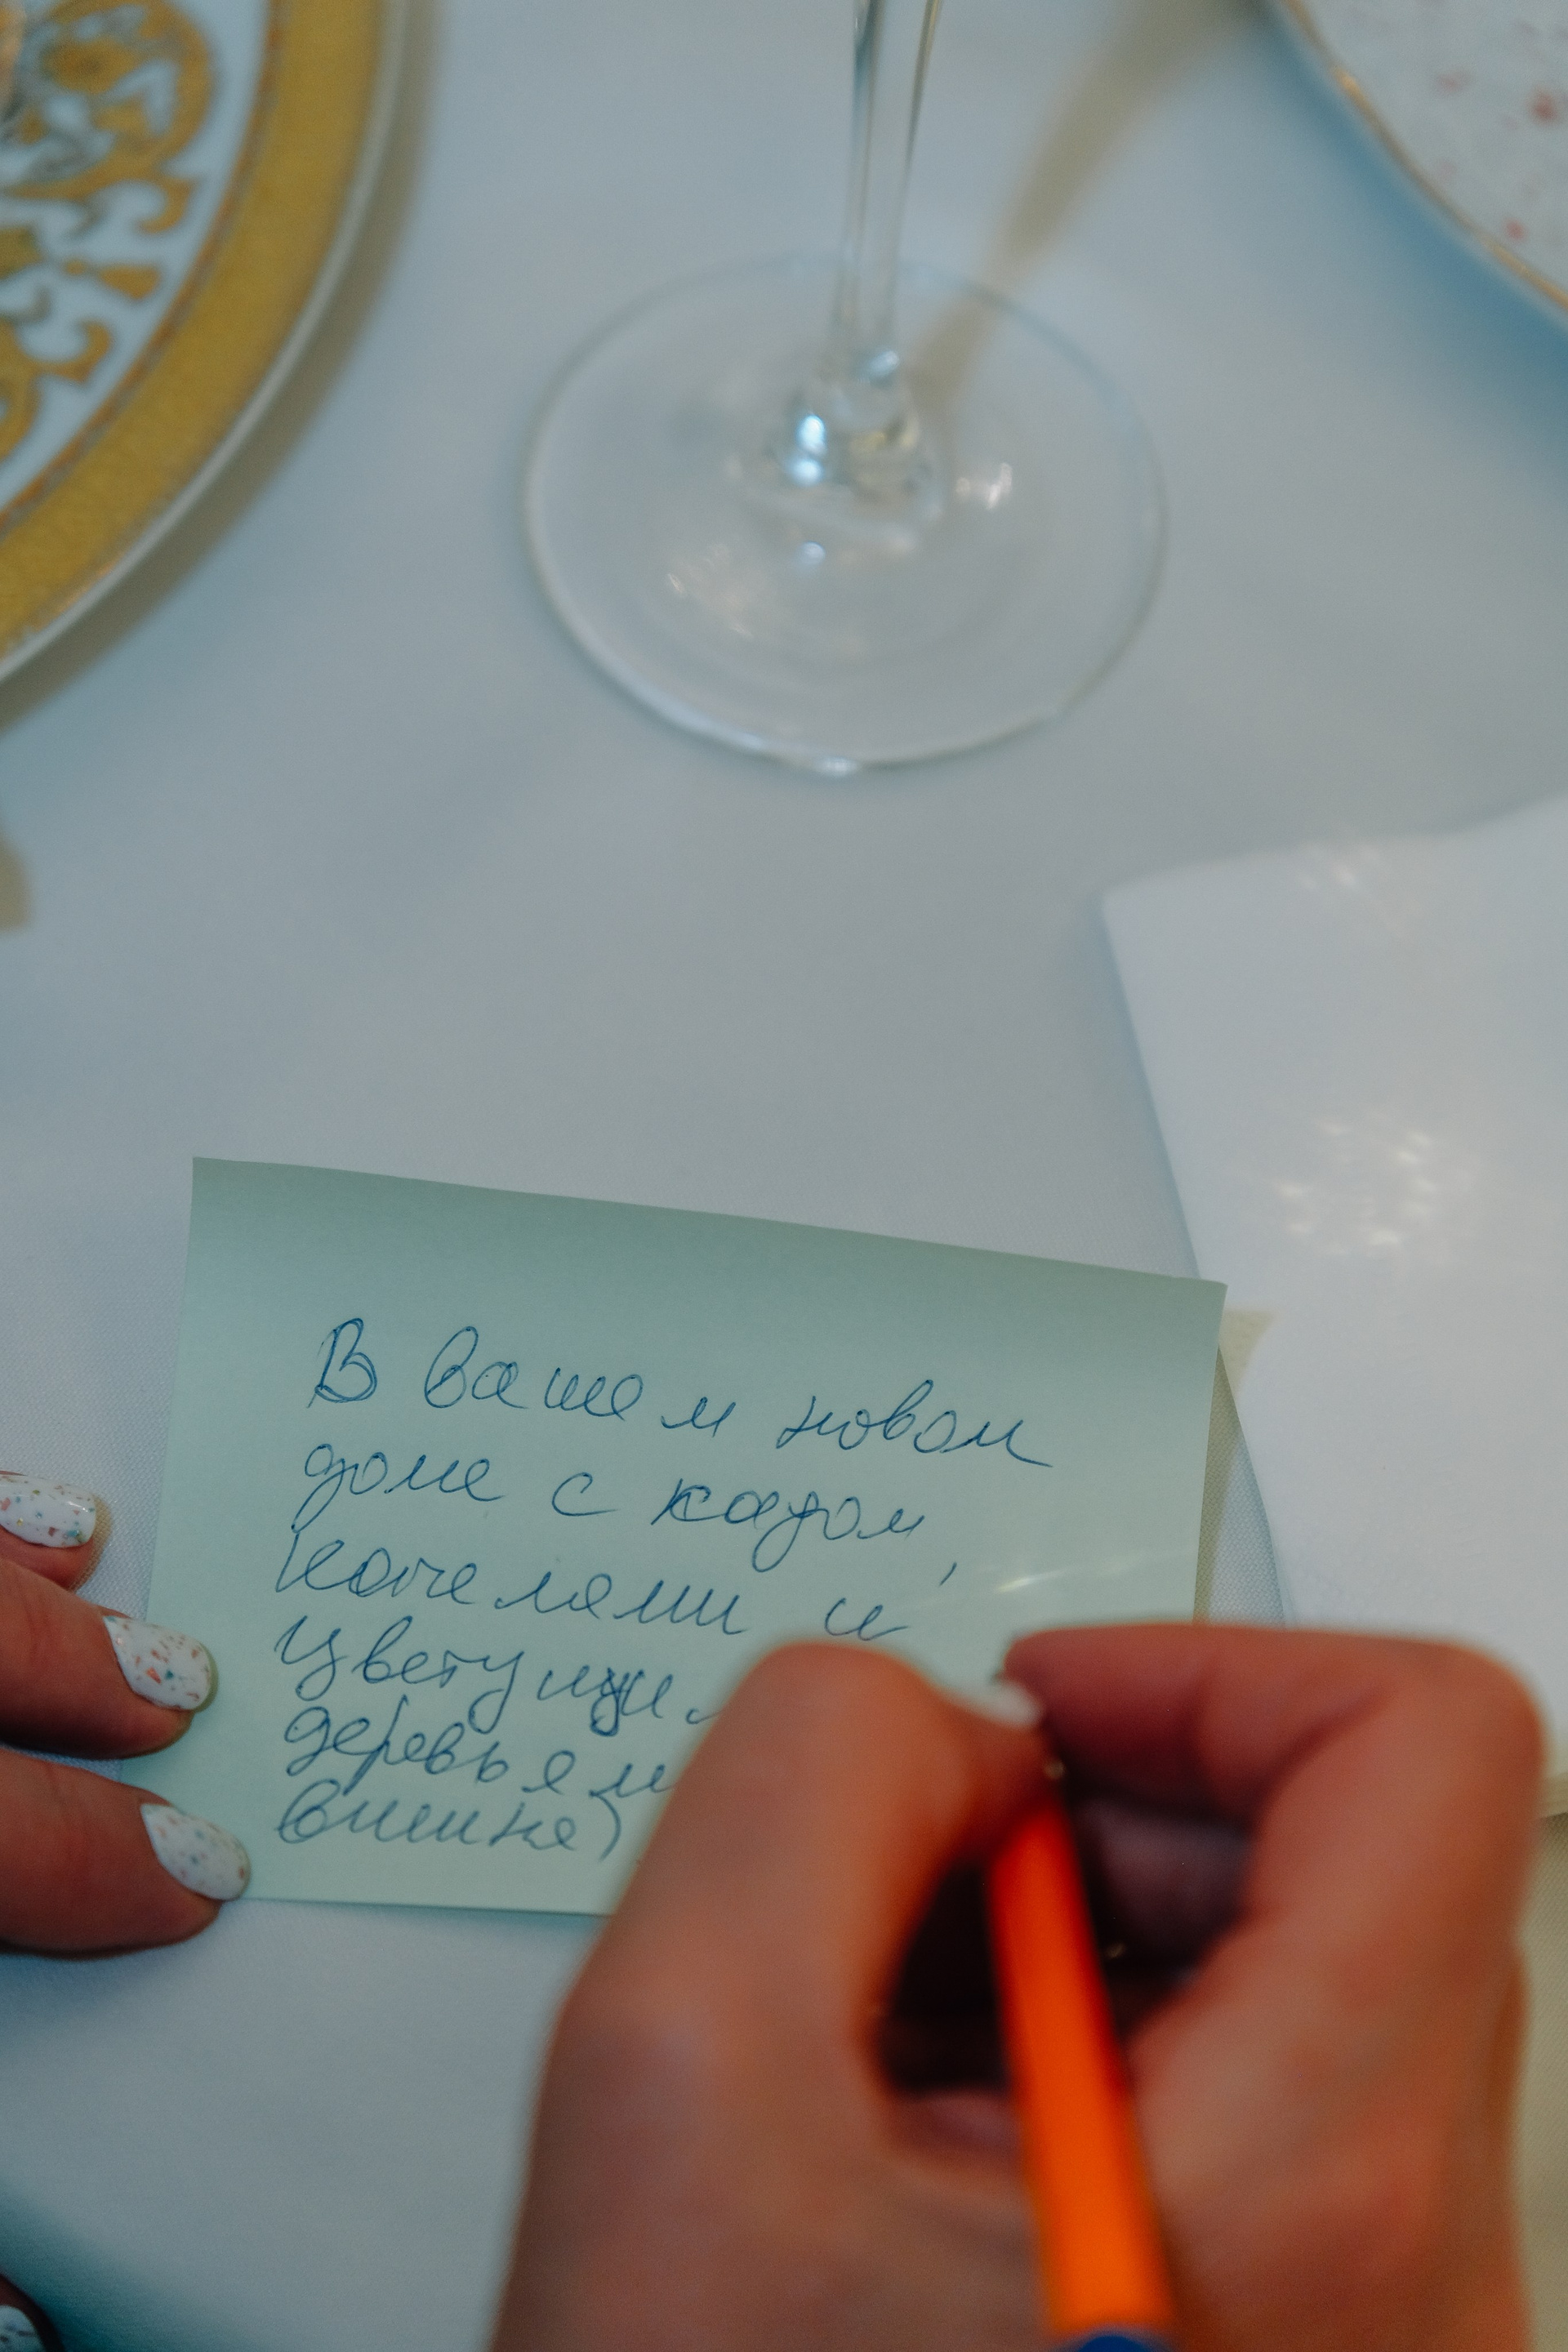 В вашем новом
доме с садом,
качелями и
цветущи
деревья
вишне)